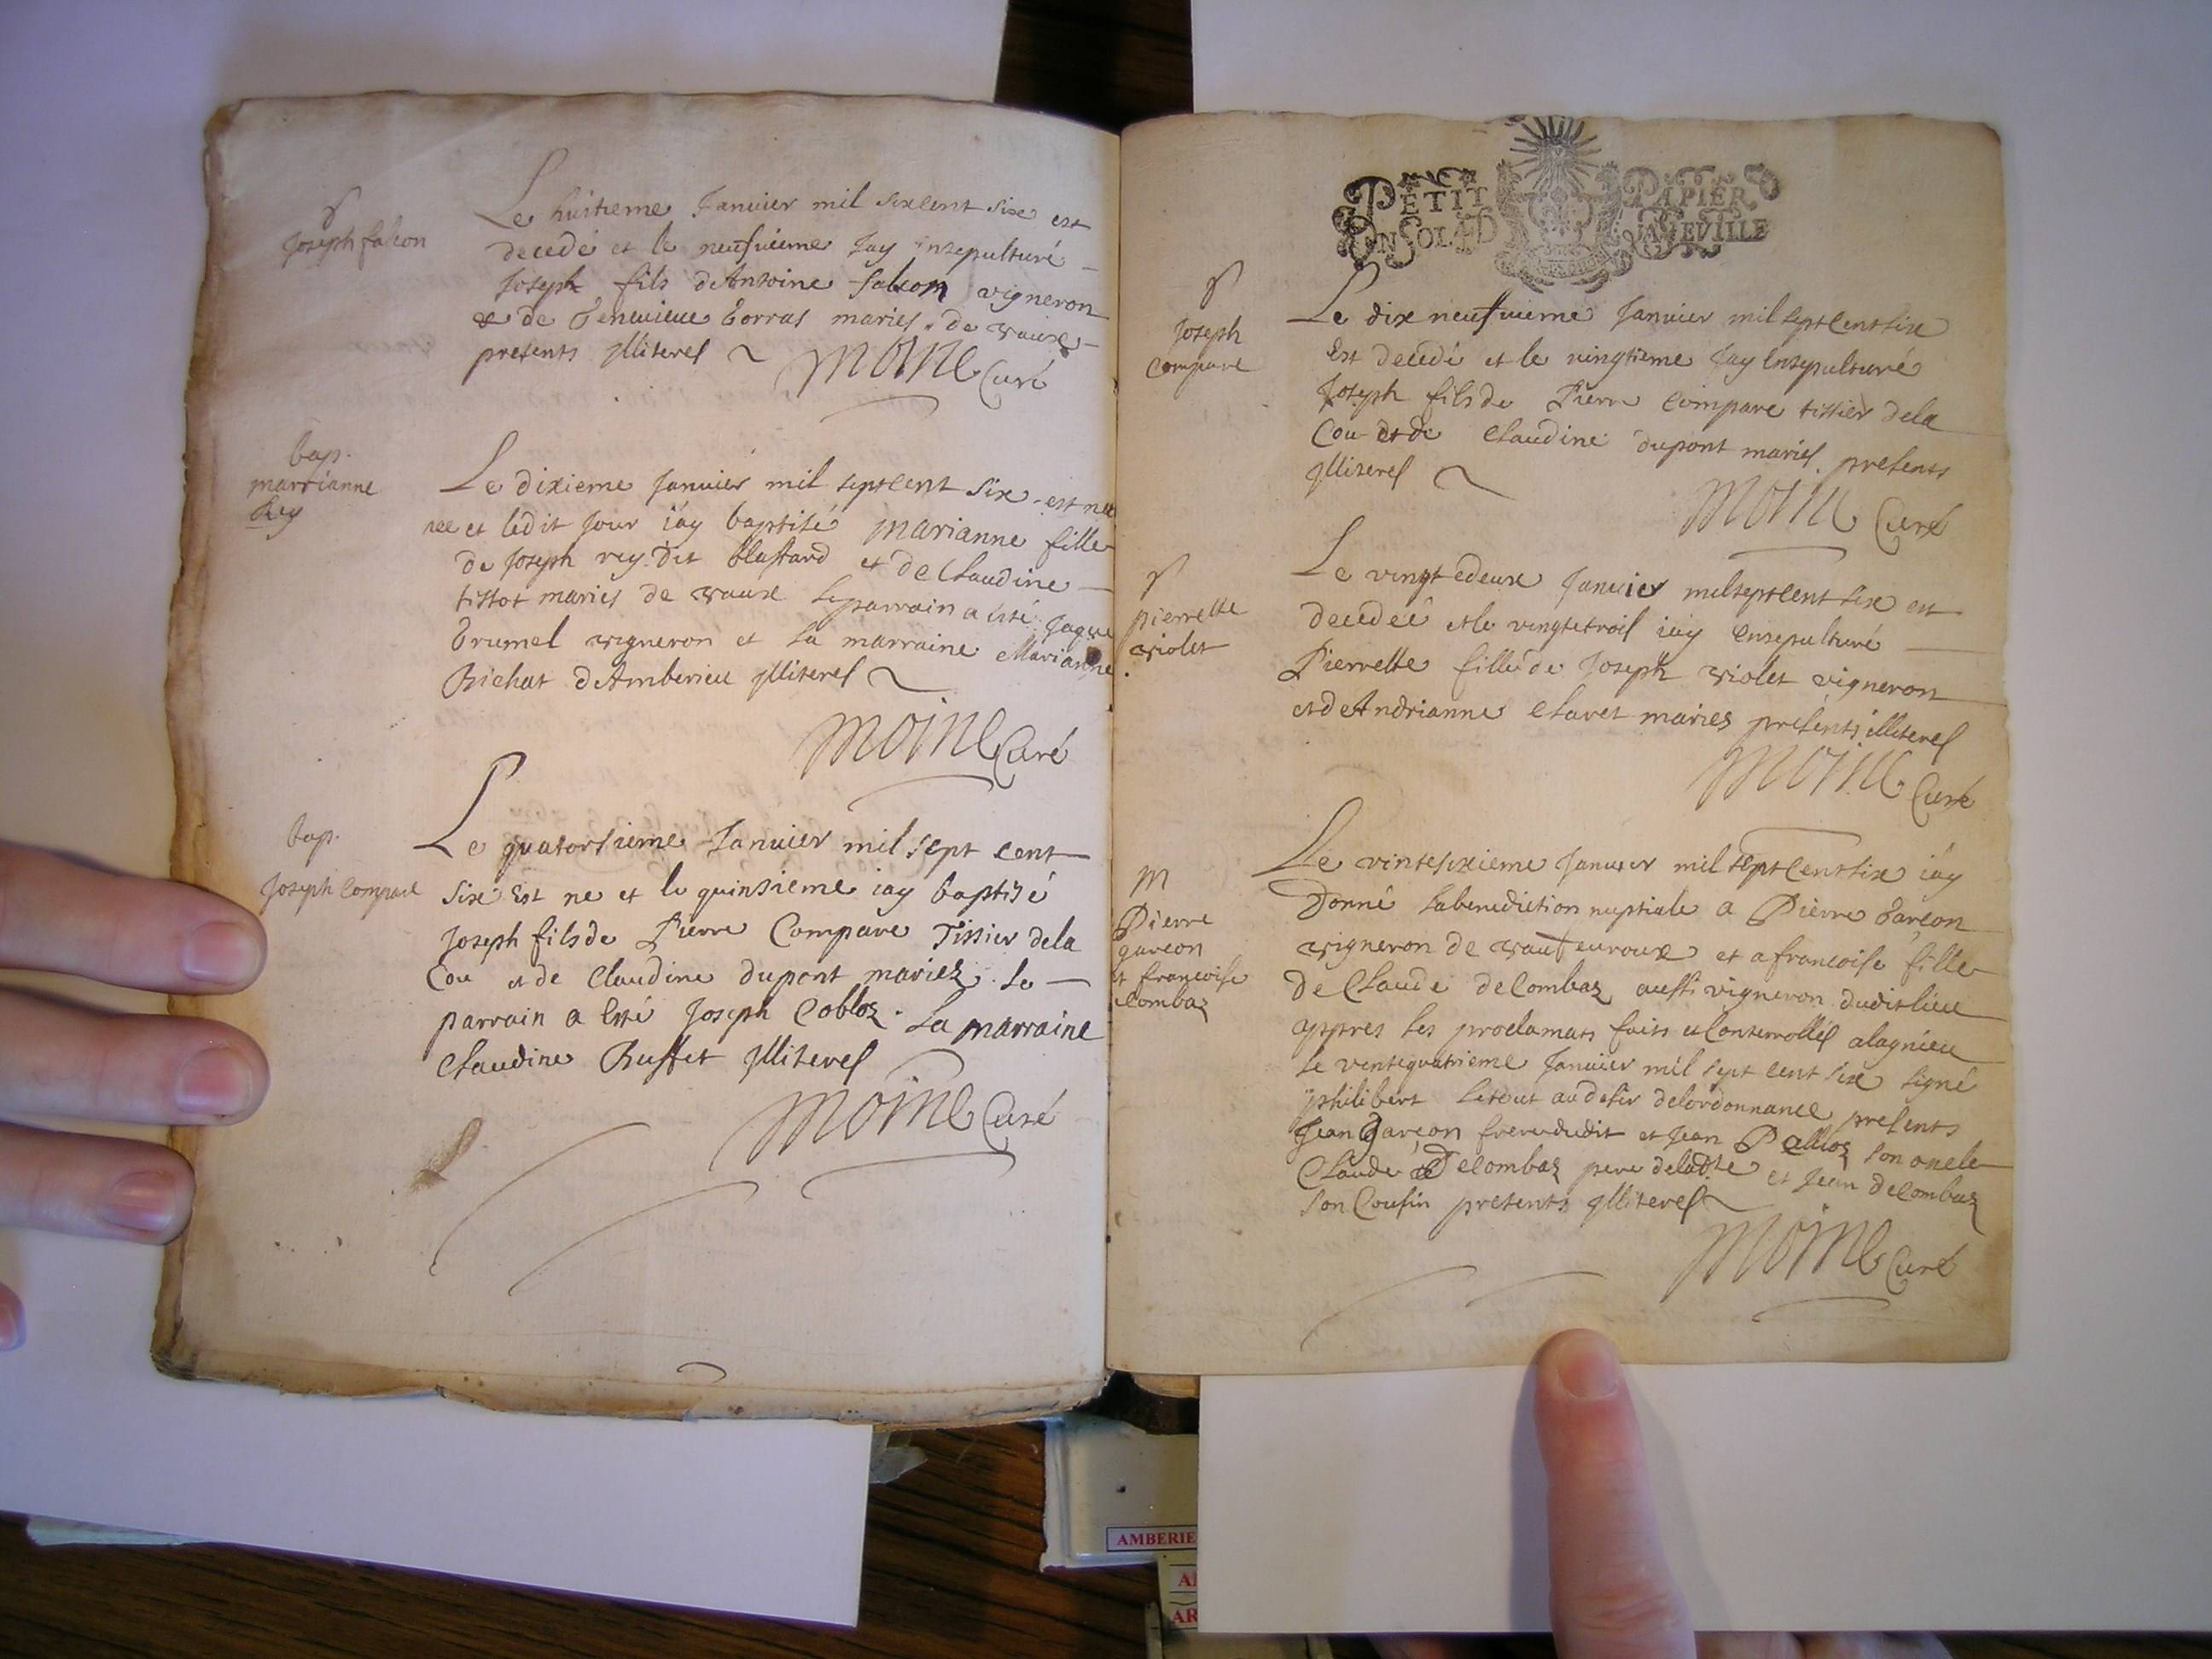 Joseph falcon
Le huitieme Januier mil sixcent six est
decedé et le neufuieme Jay insepulturé
Joseph fils dAntoine falcon vigneron
& de Geneuieue Gorras mariés de vaux
presents Jlliterés
Moine Curé
bap.
marrianne
Rey
Le dixieme Januier mil septcent six est nee
nee et ledit Jour i'ay baptisé Marianne fille
de Joseph rey dit blastard et de Claudine
tissot mariés de vaux le parrain a esté Jaque
Trumel vigneron et la marraine Marianne
Bichat dAmberieu Jlliterés
Moine Curé
bap.
Joseph Compare
Le quatorsieme Januier mil sept cent
six Est ne et le quinsieme iay baptisé
Joseph fils de Pierre Compare Tissier dela
Cou et de Claudine dupont mariez le
parrain a esté Joseph Cobloz. La marraine
Claudine Buffet Jlliterés
Moine Curé
PETIT PAPIER
UN SOL LAFEVILLE
Joseph
Compare
Le dix neufuieme Januier mil septcentsix
Est decedé et le vingtieme Jay Ensepulturé
Joseph fils de Pierre Compare tissier dela
Cou et de Claudine dupont mariés presents
Jlliterés
Moine Curé
pierrette
violet
Le vingt edeux Januier milseptcent six est
decedeé et le vingtetrois iay Ensepulturé
Pierrette fille de Joseph violet vigneron
et dAndrianne Clavet maries presents illiterés
Moine Curé
m
Pierre
garcon
et francoise
Combaz
Le vintesixieme Januier mil septcentsix i'ay
Donné labenediction nuptiale a Pierre Garcon
vigneron de vauxfeuroux et a francoise fille
De Claude deCombaz aussi vigneron dudit lieu
appres les proclamats faits et Conterrollés alagnieu
le vintequatrieme Januier mil sept cent six signé
philibert letout au desir delordonnance presents
Jean Garcon frere dudit et Jean Pallioz son oncle
Claude DeCombaz pere deladte et Jean deCombaz
son Cousin presents Jlliterés
Moine Curé
AMBERIE
A
AR